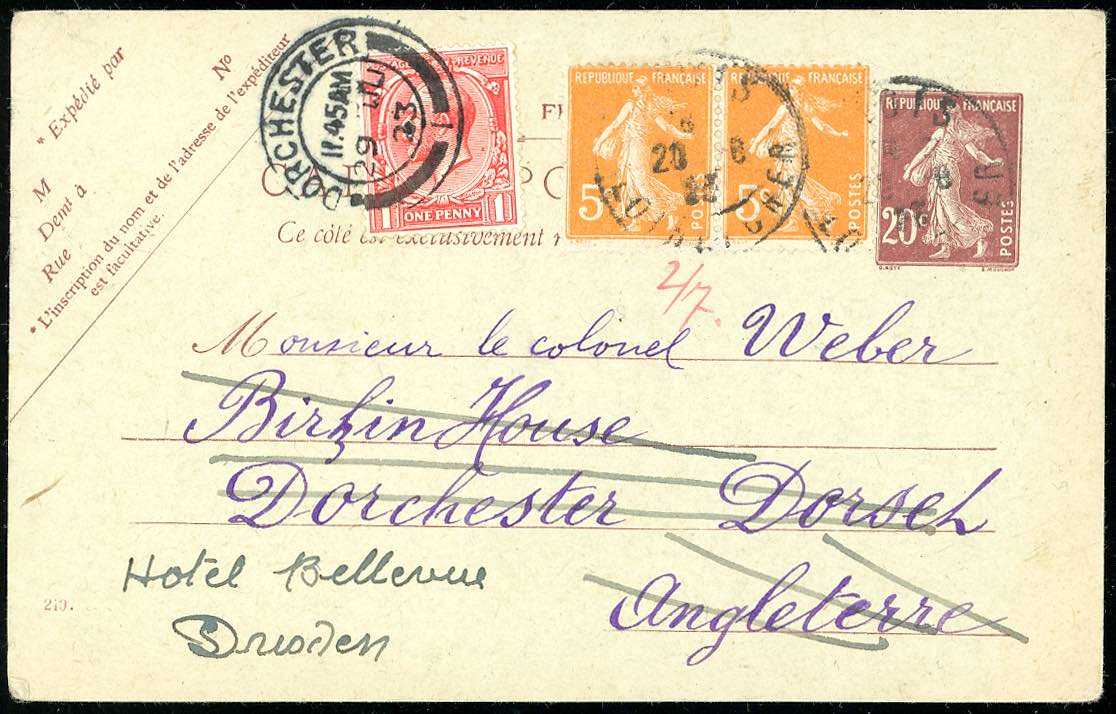 * Expédié par
M
Demt à
Rue
Nº
* L'inscription du nom et de l'adresse de l'expéditeur
est facultative.
DORCHESTER
11.45AM
29 JU
23
POSTAGE REVENUE
ONE PENNY
1 1
REPUBLIQUE FRANÇAISE
5c
POSTES
REPUBLIQUE FRANÇAISE
5c
POSTES
REPUBLIQUE FRANÇAISE
20c
POSTES
20 6
Ce côté est exclusivement
2/7.
Monsieur le colonel Weber
Birkin House
Dorchester Dorset
Angleterre
Hotel Bellevue
Dresden
219.